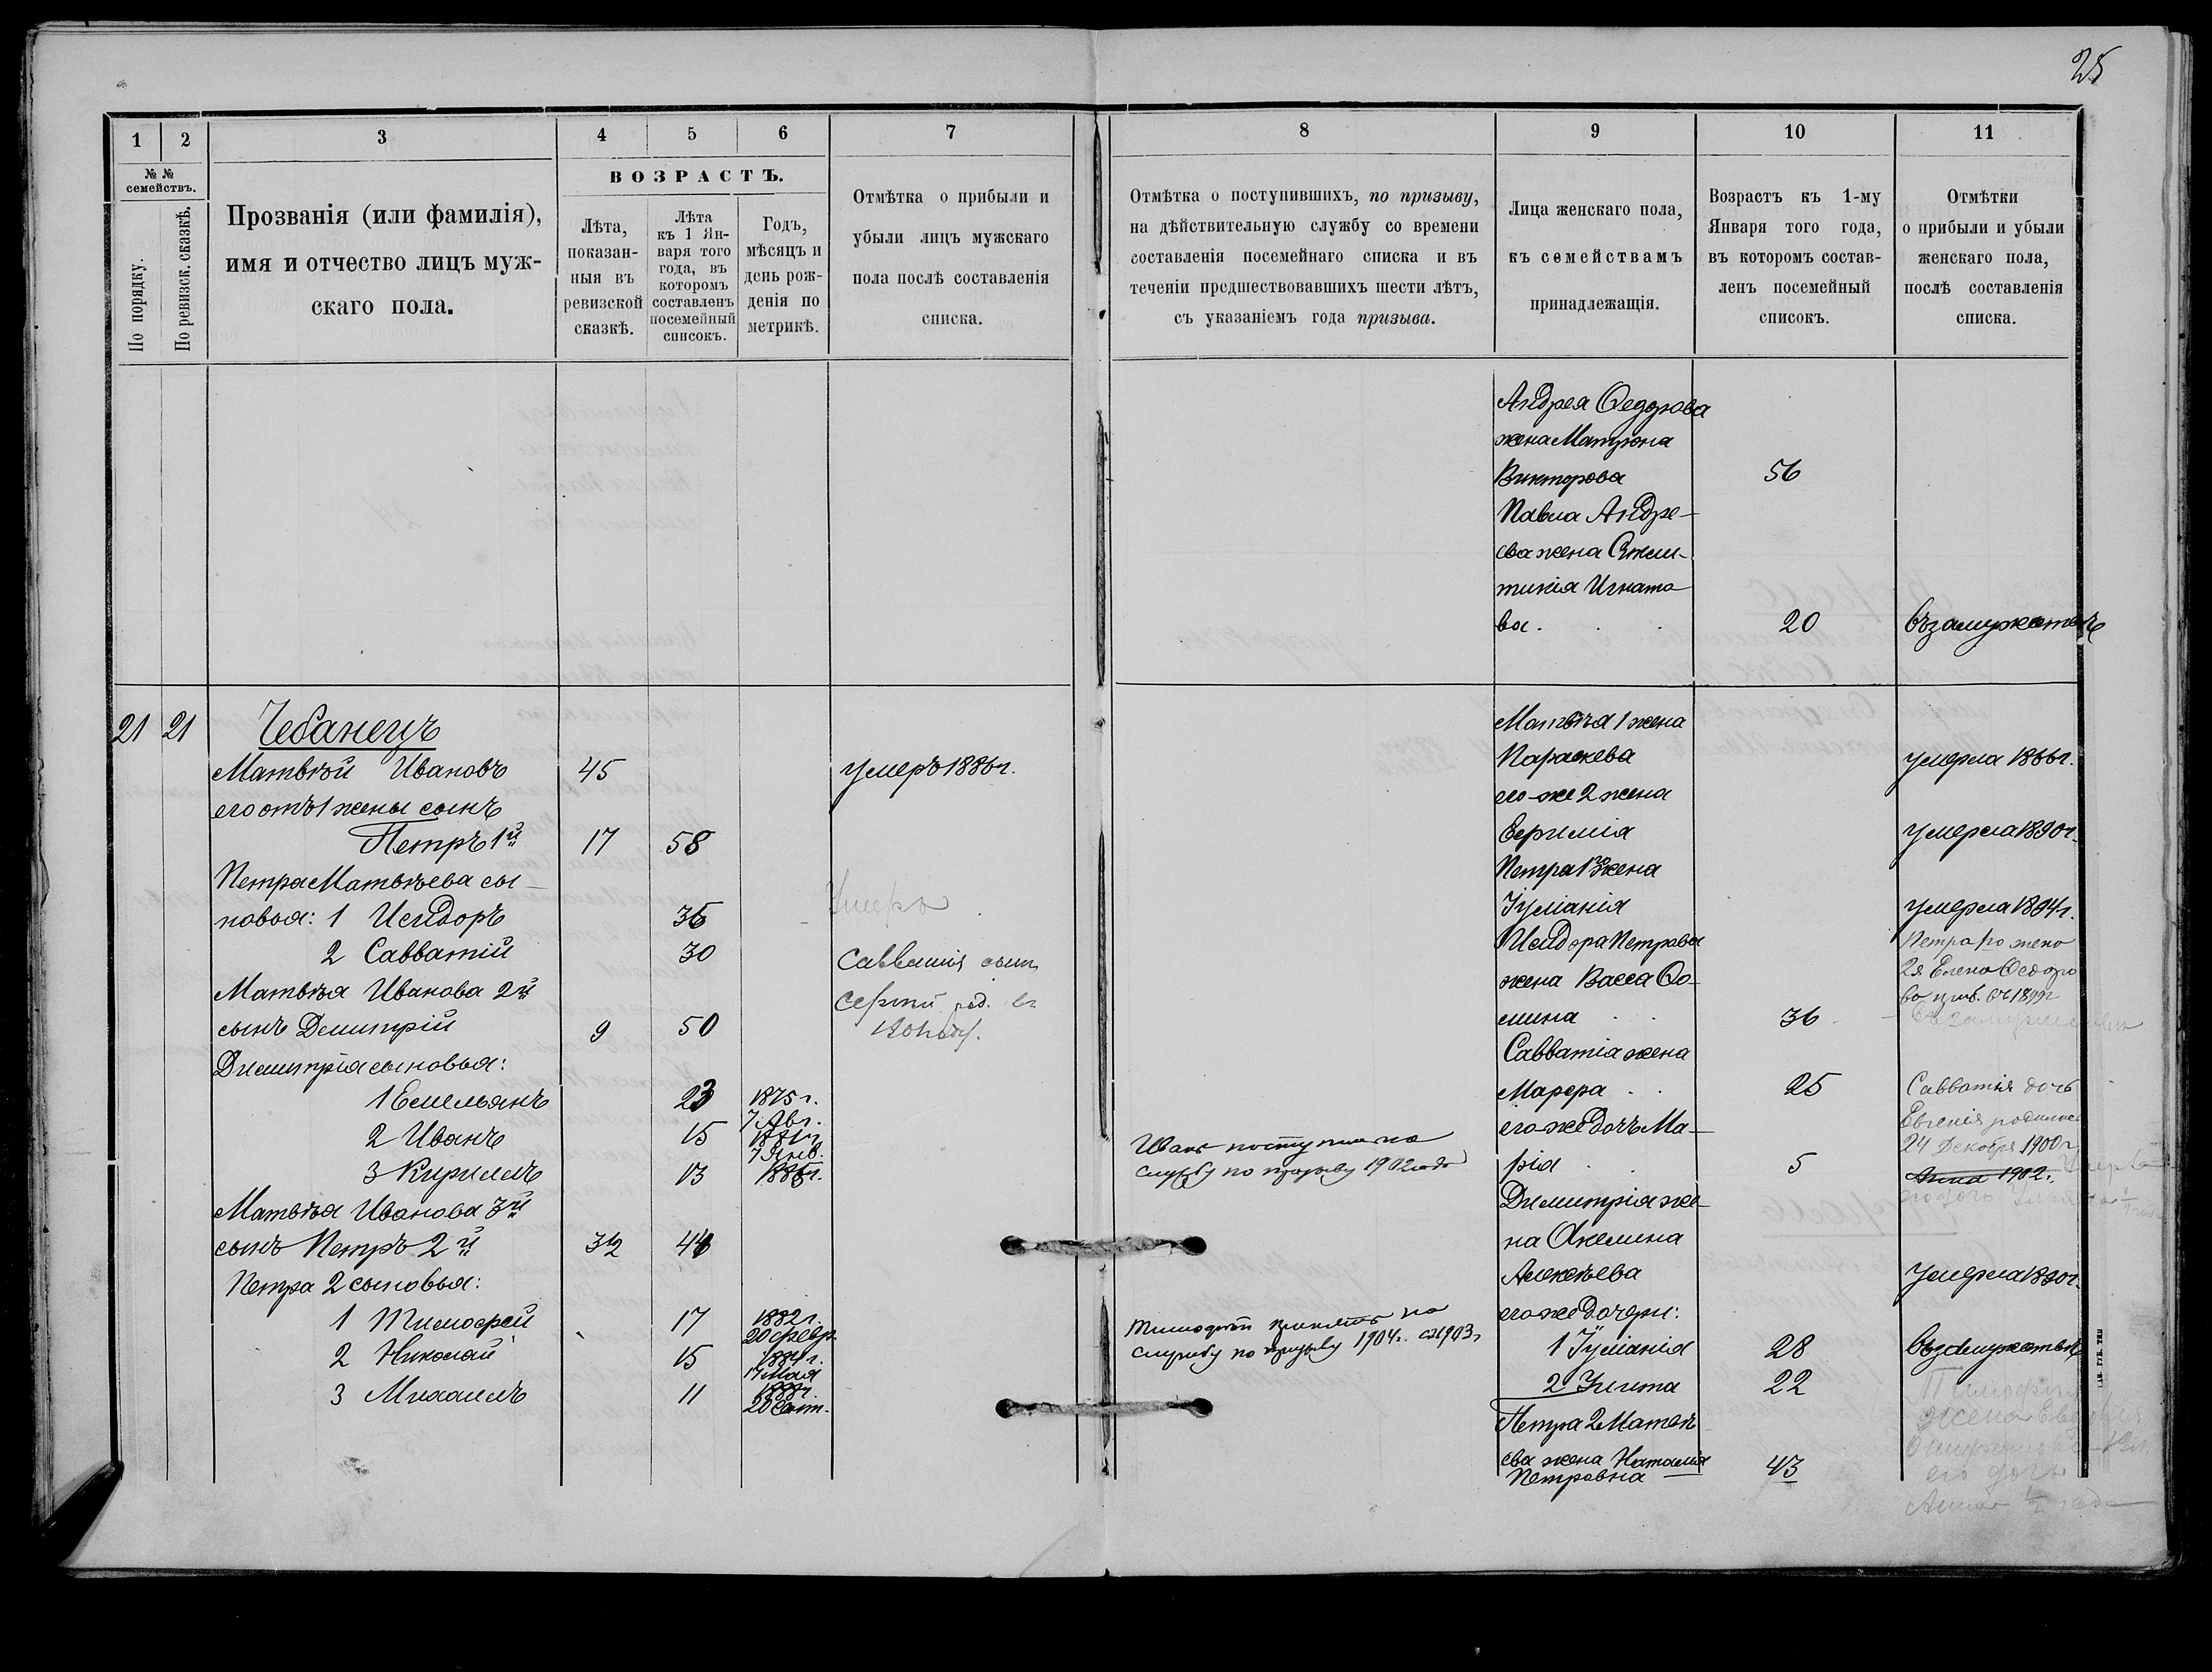 25
1
2
3
4
5
6
7
8
9
10
11
№ №
семействъ.
По порядку.
По ревизск. сказкѣ.
Прозванія (или фамилія),
имя и отчество лицъ муж-
скаго пола.
ВОЗРАСТЪ.
Лѣта,
показан-
ныя въ
ревизской
сказкѣ.
Лѣта
къ 1 Ян-
варя того
года, въ
которомъ
составленъ
посемейный
списокъ.
Годъ,
мѣсяцъ и
день рож-
денія по
метрикѣ.
Отмѣтка о прибыли и
убыли лицъ мужскаго
пола послѣ составленія
списка.
Отмѣтка о поступившихъ, по призыву,
на дѣйствительную службу со времени
составленія посемейнаго списка и въ
теченіи предшествовавшихъ шести лѣтъ,
съ указаніемъ года призыва.
Лица женскаго пола,
къ семействамъ
принадлежащія.
Возрастъ къ 1-му
Января того года,
въ которомъ состав-
ленъ посемейный
списокъ.
Отмѣтки
о прибыли и убыли
женскаго пола,
послѣ составленія
списка.
Андрея Ѳедорова
жена Матрона
Викторова 56
Павла Андре-
ева жена
тикія Игнато
ва. 20 Въ замужествѣ
21 21 Чебанецъ
Матвѣй Ивановъ 45 умеръ 1886 г.
его отъ 1 жены сынъ
Петръ 1й 17 58
Петра Матвѣева сы-
новья: 1 Исидоръ 36 Умеръ
2 Савватій 30 Савватія сынъ
Матвѣя Иванова 2й Сергѣй род. въ
сынъ Димитрій 9 50
Димитрія сыновья:
1 Емельянъ 23 1875 г.
7 Авг.
2 Иванъ 15 1881 г.
7 Янв.
3 Кириллъ 13 1886 г.
Матвѣя Иванова 3й
сынъ Петръ 2й 3½ 44
Петра 2 сыновья:
1 Тимофей 17 1882 г.
20 февр.
2 Николай 15 1884 г.
17 Мая
3 Михаилъ 11 1888 г.
20 Сент.
Иванъ поступилъ на
службу по призыву 1902 года
Тимофей принятъ на
службу по призыву 1904 г. 1903 г
Матвѣя 1 жена
Параскева умерла 1866 г.
его-же 2 жена
Евфимія умерла 1890 г.
Петра 1го жена
Іуліанія умерла 1894 г.
Исидора Петрова
жена Васса Ѳо-
мина 36
Петра 1го жена
2я Елена Ѳедоро
ва приб. въ 1899 г
Савватія жена
Марфа 25
его же дочь Ма-
рія 5
Савватія дочь
Евгенія родилась
24 Декабря 1900 г.
Анна 1902 г.
Димитрія же-
на Акелина
Алексѣева умерла 1890 г.
его же дочери:
1 Іуліанія 28 Въ замужествѣ
2 Улита 22
Петра 2 Матвѣ
ева жена Наталія
Петровна 43
Тимофея
жена
его дочь
Анна ½ года